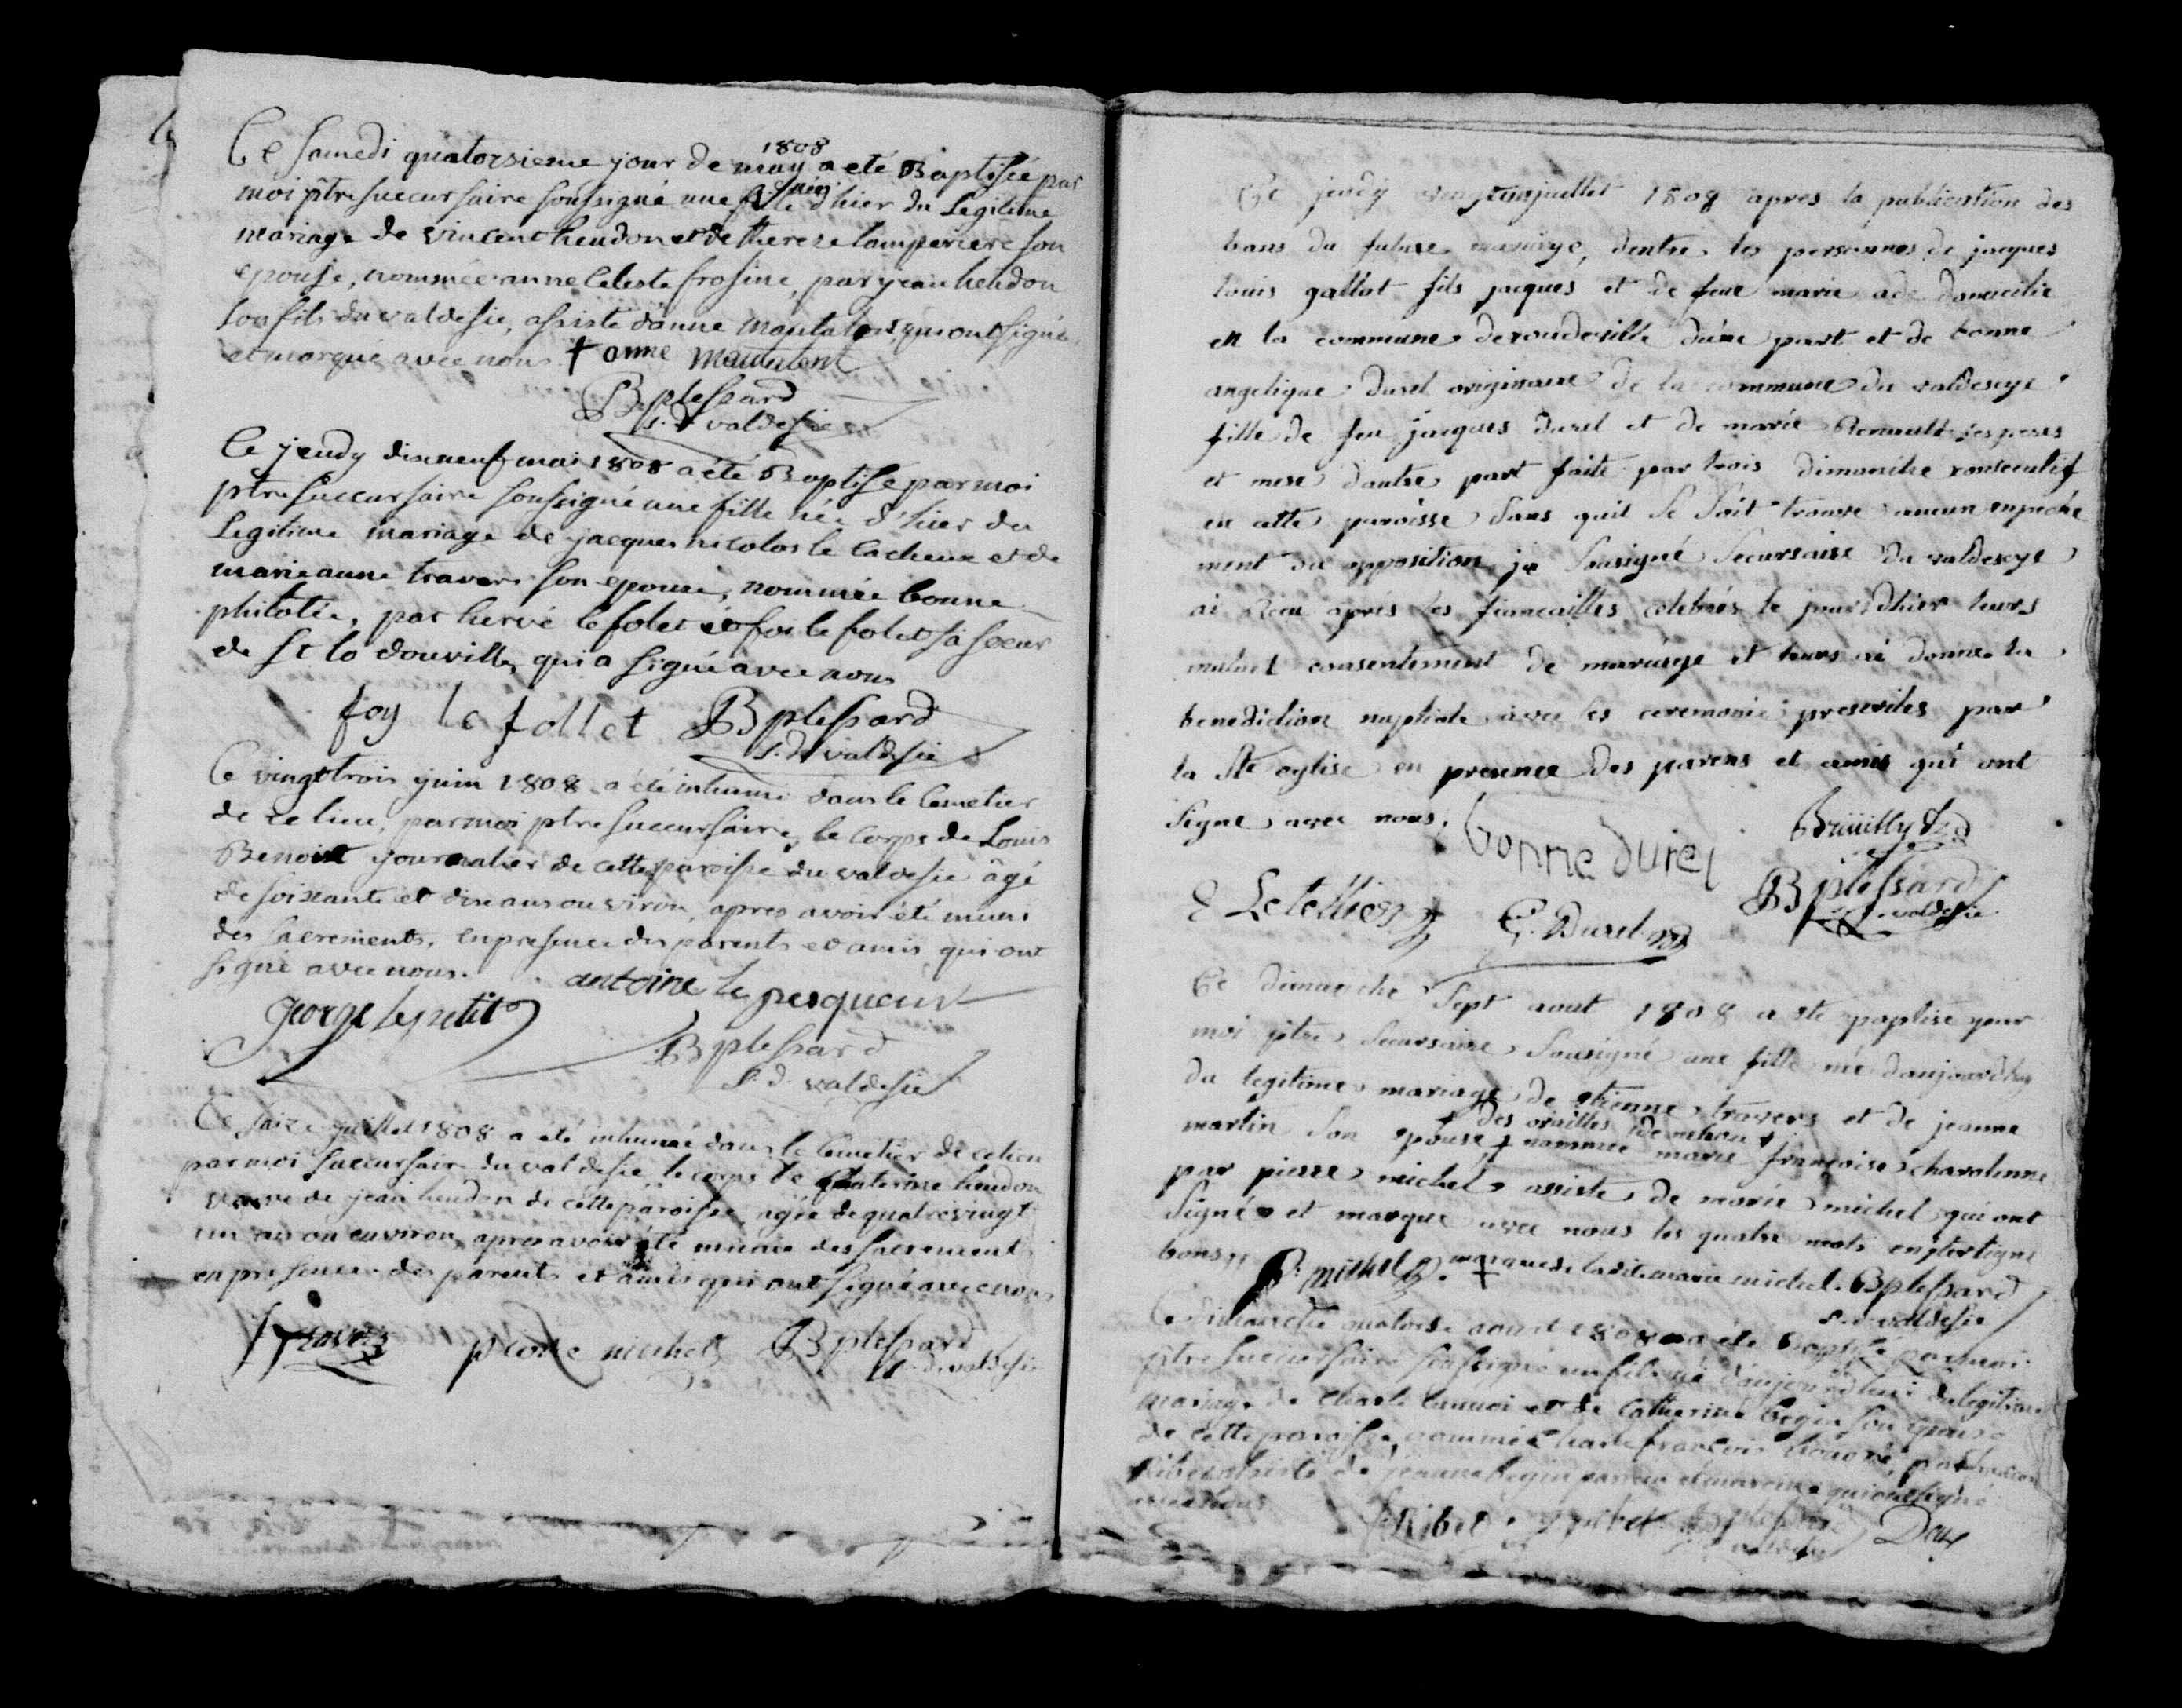 1808
Ce samedi quatorsieme jour de may a eté Baptisée par
moi ptre succursaire soussigné une fille née d'hier du Legitime
mariage de vincent heudon et de therese lamperiere son
epouse, nommée anne Celeste frosine, par jean heudon
son fils du valdesie, assisté d'anne mautalent, qui ont signé
et marqué avec nous † anne mautalent
B plessard
s. d. valdesie
Ce jeudy dixneuf mai 1808 a été Baptisé par moi
ptre succursaire soussigné une fille née d'hier du
Legitime mariage de jacques nicolas le cacheux et de
marie anne travers son epouse, nommée bonne
philotée, par hervé le folet et foi le folet sa sœur
de st lo dourville, qui a signé avec nous
foy le follet B plessard
s. d. valdesie
Ce vingt trois juin 1808 a été inhumé dans le Cemetier
de ce lieu, par moi ptre succursaire, le corps de Louis
Benoist journalier de cette paroisse du valdesie âgé
de soixante et dix ans ou viron, apres avoir été muni
des sacrements, en presence des parents et amis qui ont
signé avec nous. antoine le pesqueur
george le petit
B plessard
s. d. valdesie
Ce saize juillet 1808 a été inhumée dans le Cemetier de ce lieu
par moi succursaire du valdesie le corps de Chaterine heudon
veuve de jean heudon de cette paroisse, agée de quatre vingt
un an ou environ, apres avoir été munie des sacrements
en presence des parents et amis qui ont signé avec nous
travers pierre michel B plessard
s. d. valdesie
Ce jeudy juillet 1808 apres la publication des
bans du future mariage, dentre les personnes de jacques
louis gallot fils jacques et de feue marie ade domicilie
en la commune de d'une part et de bonne
angelique durel originaire de la commune du valdescye
fille de feu jacques durel et de marie Renault ses peres
et mere d'autre part faite par trois dimanche consecutif
en cette paroisse sans quil se soit trouvé aucun enpeche
ment ou opposition je sousigné secursaire du valdescye
ai Recu aprés les fiancailles celebrés le jour d'hier leurs
mutuel consentement de mariage et leurs ai donné la
benediction nuptiale avec les ceremonie prescrites par
la Ste eglise en presence des parens et amis qui ont
signe avec nous.
bonne durel
B plessard
s. d. valdesie
E Letellier
Durel
Ce dimanche sept aout 1808 a ete paptisé par
moi ptre secursaire sousigné une fille née d'aujourdhui
du legitime mariage de etienne travers et de jeanne
† des oveilles de nehou †
martin son epouse, † nommée marie françoise
par pierre michel assisté de marie michel qui ont
signé et marque avec nous les quatre mots en jnterligne
bons,, P. michel. marque de ladite marie michel. † B plessard
s. d. valdesie
Ce dimanche quatorse aout 1808 a été Baptisé par moi
ptre succursaire soussigné un fils né d'aujourd'hui du legitime
mariage de Charle et de Catherine begin son epouse
de cette paroisse, nommé françois
de jeanne begin parrain et maraine qui ont signé
avec nous